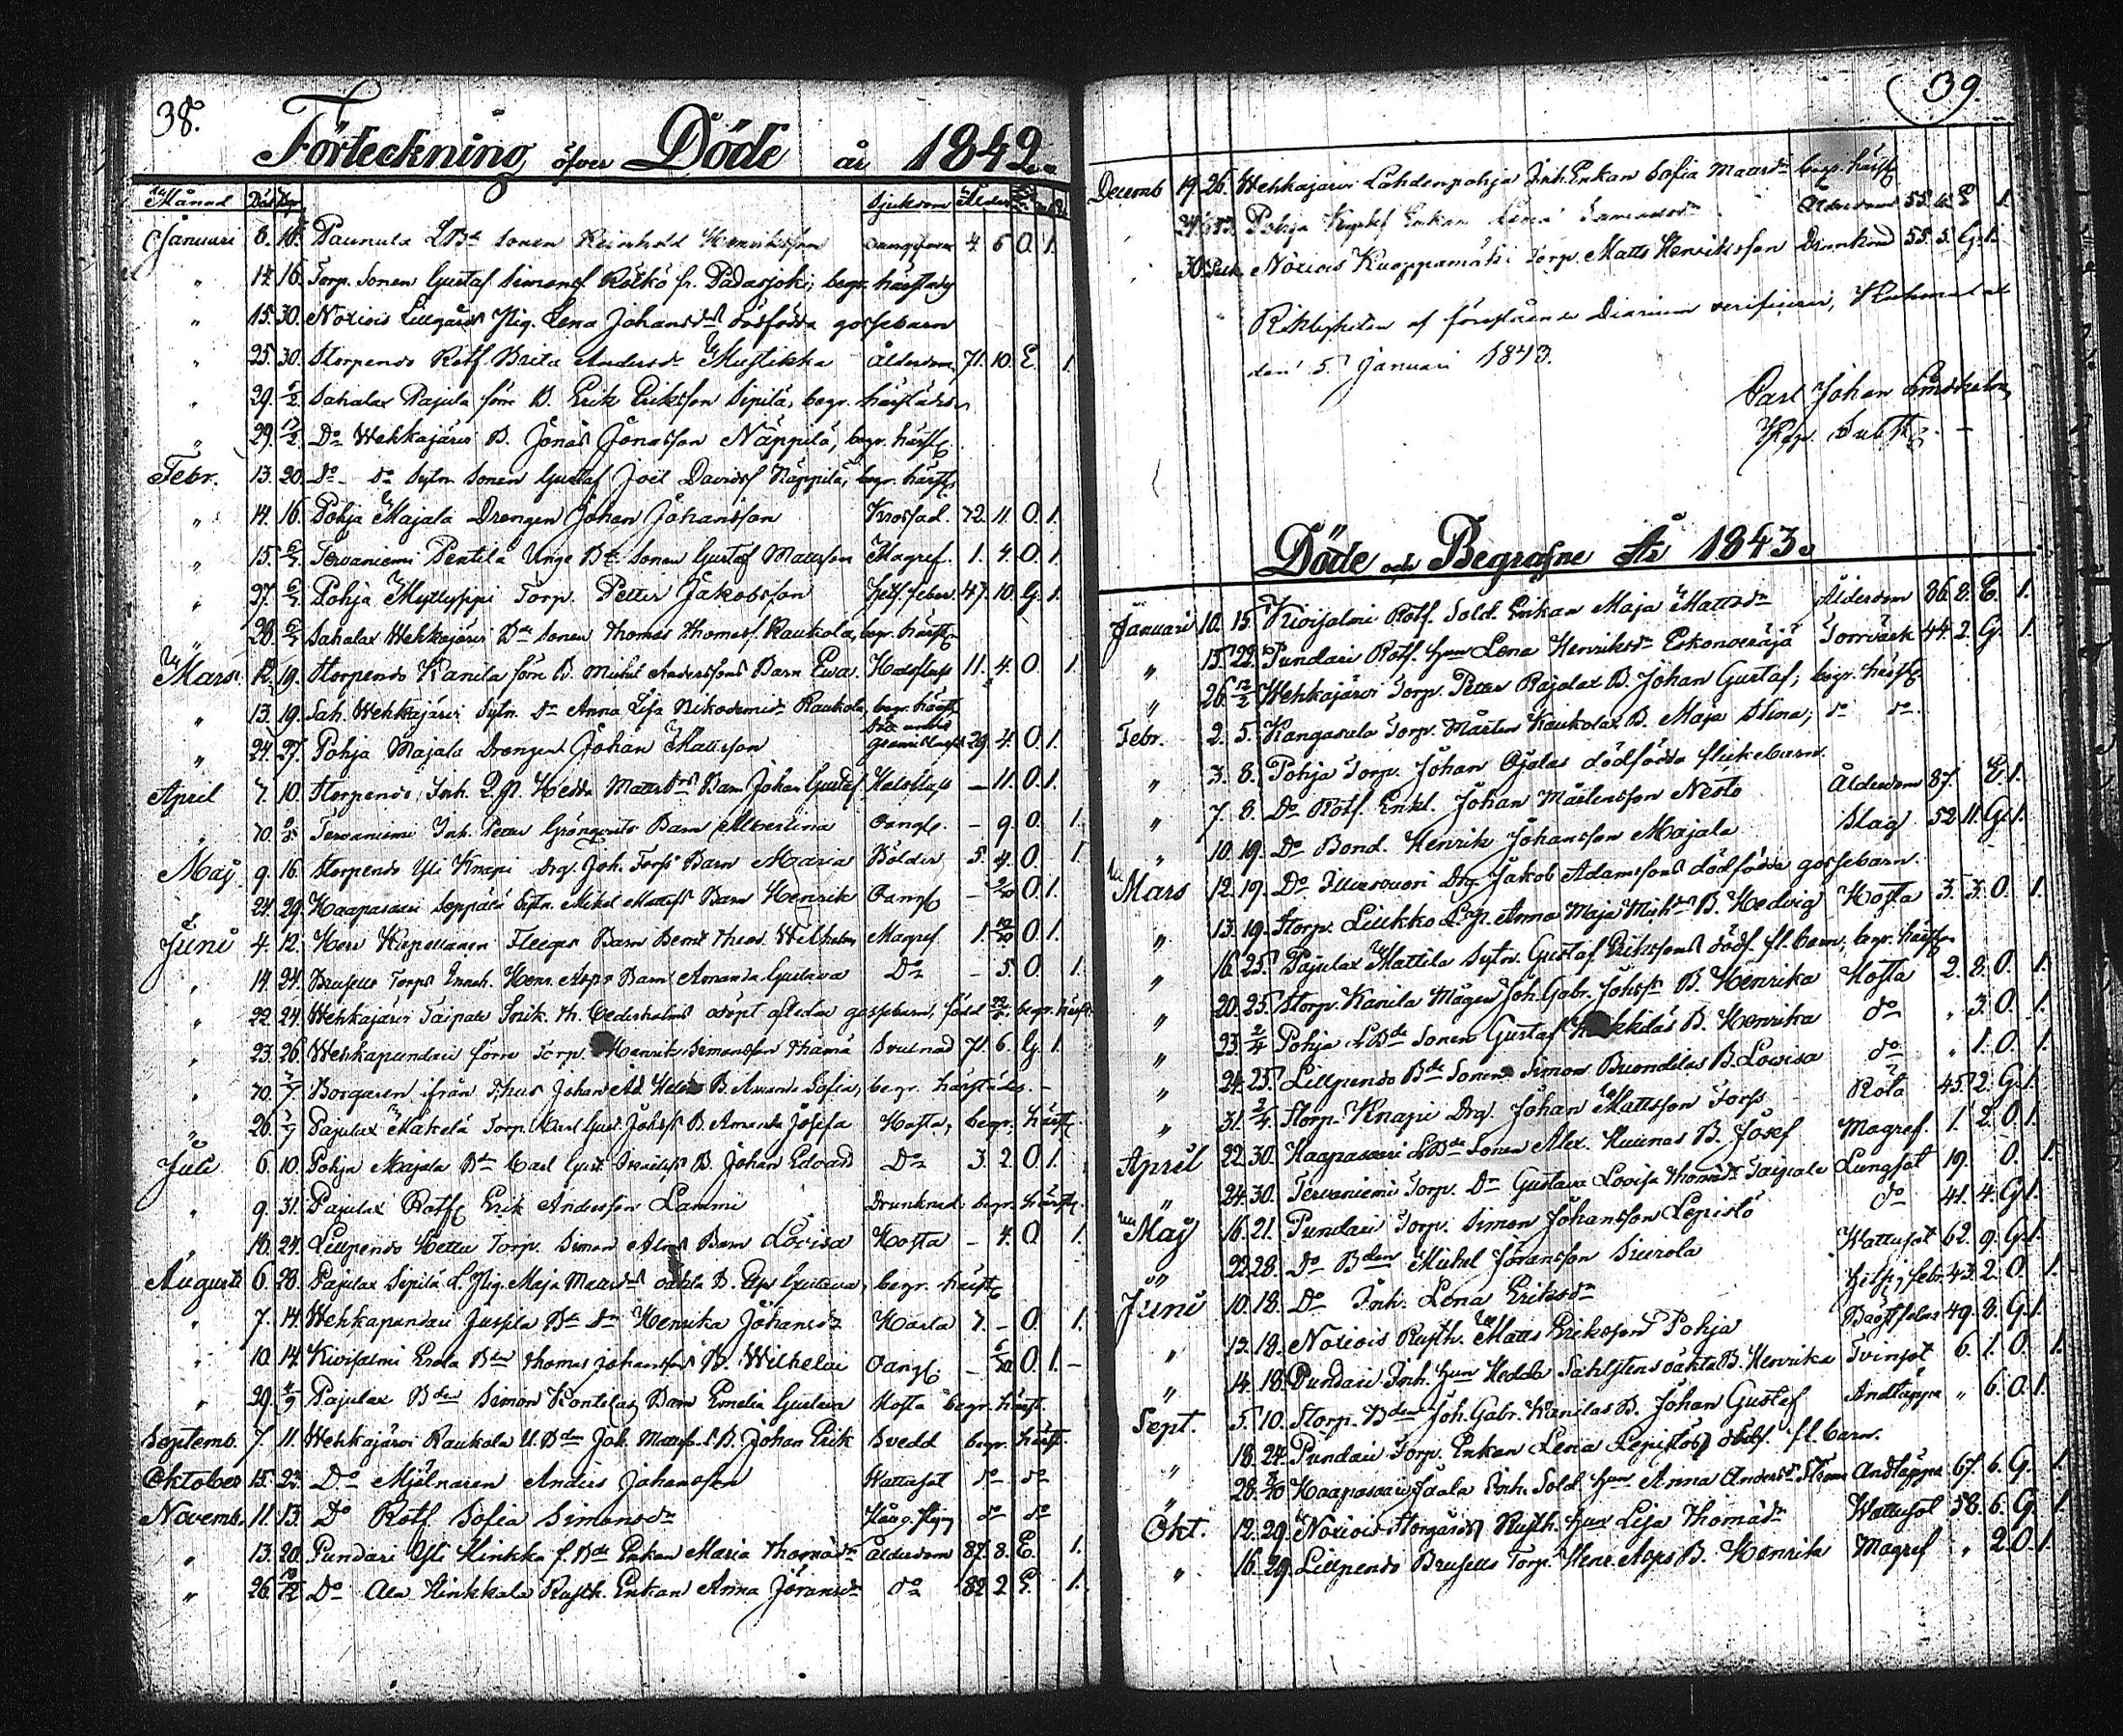 38.
Förteckning öfver Döde år 1842.
Månad Död Begr. Sjukdom Ålder
Januari 8. 16. Paunula LBde Sonen Reinhold Henriksson 4 5 O. 1.
" 14. 16. Torp. Sonen Gustaf Simonss Rötkö fr. Padasjoki, begr. härstädes
" 15. 30. Noxiois Lillgårds Pig. Lena Johansdrs dödfödda gossebarn
" 25. 30. Storpendo Rotf. Brita Andersdr Mustikka Ålderdom 71. 10. E. 1.
" 29. 6/2 Sahalax Pajula förre B. Erik Eriksson Sipilä, begr. härstädes
" 29. 13/2 Do Wehkajärvi B. Jonas Jonasson Näppilä, begr. härst
Febr. 13. 20. Do do Sytn. Sonen Gustaf Joel Davidss Näppilä, begr. härst
" 14. 16. Pohja Majala Drengen Johan Johansson 72. 11. O. 1.
" 15. Tervaniemi Pentilä Unge Bde Sonen Gustaf Mattsson Magref. 1. 4. O. 1.
" 27. Pohja Myllyseppi Torp. Petter Jakobsson Hets. feber 47. 10. G. 1.
" 28. Sahalax Wehkajärvi Bde Sonen Thomas Thomass. Raukola, begr. härst
Mars. 12. 19. Storpendo Kanila förre B. Michel Anderssons Barn Ewa. Halsfluss 11. 4. O. 1.
" 13. 19. Sah. Wehkajärvi Sytn. Dr Anna Lisa Nikodemidr Raukola, begr. härst
" 24. 27. Pohja Majala Drengen Johan Mattsson 29. 4. O. 1.
April 7. 10. Storpendo, Inh. Q.P. Hedda Mattsdrs Barn Johan Gustaf Halsfluss — 11. O. 1.
" 10. Tervaniemi Inh. Petter Grönqvists Barn Albertina Oangf. — 9 O. 1.
Maj. 9. 16. Storpendo Yli Knapi Drg. Joh. Forss Barn Maria Bölder 5. 4. O. 1.
24. 29. Haapasaari Seppälä Sytn. Mikel Mattss Barn Henrik Oangf — O. 1.
Juni 4. 12. Herr Kapellanen Fleeges Barn Bernt Theod. Wilhelm Magref 1. O. 1.
" 14. 24. Brusells Torps Ennch. Henr. Asps Barn Amanda Gustava Do — 5. O. 1.
" 22. 24. Wehkajärvi Taipale Snik. Th. Cederholms odöpt afledne gossebarn, född begr. härst.
" 23. 26. Wehkapundari förre Torp. Henrik Simonsson Thamä Brusnad 71. 6. G. 1.
" 10. Borgaren ifrån Thus Johan Ad. B. Amanda Sofia, begr. härstädes. —
" 26. Pajulax Mäkelä Torp. Karl Gust. Johss B. Amanda Josefa Hosta, begr. härst
Juli 6. 10. Pohja Majala Bdn Carl Gust. B. Johan Edvard Do 3. 2. O. 1.
" 9. 31. Pajulax Rotf Erik Andersson Lammi Drunknad, begr. härst.
" 18. 24. Lillpendo Hettu Torp. Simon Barn Lovisa Hosta — 4. O. 1.
Augusti 6. 28. Pajulax Sipilä L. Pig. Maja Mattsdrs oäkta B. Gustava, begr. härst
" 7. 14. Wehkapundari Jussila Bde Dr Henrika Johansdr 7. — O. 1.
" 10. 14. Kivisalmi Erola Bdn Thomas Johanssons B. Wilhelm Oangf. — O. 1. —
" 29. Pajulax Bden Simon Kontolas Barn Emelia Gustava Hosta begr. härst.
Septemb. 7. 11. Wehkajärvi Raukola U. Bden Joh. Mattss B. Johan Erik Bvedd begr. härst.
Oktober 15. 23. Do Mjölnaren Anders Johansson Wattusot do do
Novemb. 11. 13. Do Rotf Sofia Simonsdr do do
" 13. 20. Pundari Yli Hinkka f. Bde Enkan Maria Thomasdr Ålderdom 87. 8. E. 1.
" 26. Do Ala Hinkkala Rusth. Enkan Anna Göransdr do 82. 2 E. 1.
39.
Decemb 19. 26. Wehkajärvi Lahdenpohja Inh. Enkan Sofia Mattsdr begr. härst
Pohja Enkan Lena Samuelsdr Ålderdom E 1.
30. Noxiois Kuoppamäki Torp. Matts Henriksson Drunknad 55. 5. G. 1.
Riktigheten af förestående Diarium verificerar,
den 5. Januari 1843.
Carl Johan Lindholm
Döde och Begrafne År 1843.
Januari 10. 15. Kivisalmi Rotf. Sold. Enkan Maja Mattsdr Ålderdom 86. 8. E. 1.
" 15. 22. Pundari Rotf. hun Lena Henriksdr Torrväck 44. 2. G. 1.
" 26. 12/2 Wehkajärvi Torp. Petter Rajalax B. Johan Gustaf; begr. härst
Febr. 2. 5. Kangasala Torp. Mårten Kaukolax B. Maja Stina; do do.
" 3. 8. Pohja Torp. Johan Ojalas dödfödda flickebarn.
" 7. 8. Do Rotf. Enkl. Johan Mårtensson Nesto Ålderdom 87. E. 1.
" 10. 19. Do Bond. Henrik Johansson Majala Slag 52. 11. G. 1.
Mars 12. 19. Do Drg. Jakob Adamssons dödfödda gossebarn.
" 13. 19. Storp. Liukko L.P. Anna Maja Michsdr B. Hedvig Hosta 3. 3. O. 1.
" 16. 25. Pajulax Mattila Sytn. Gustaf Erikssons dödf. fl. barn, begr. härst
" 20. 25. Storp. Kanila Mågen Joh. Gabr. Johss B. Henrika Hosta 2. 8. O. 1.
" 23. 2/4 Pohja LBde Sonen Gustaf B. Henrika do " 3. O. 1.
" 24. 25. Lillpendo Bde Sonen Simon B. Lovisa do " 1. O. 1.
" 31. 2/4 Storp. Knapi Drg. Johan Mattsson Forss Röta 45. 2. G. 1.
April 22. 30. Haapasaari LBde Sonen Alex. B. Josef Magref. 1. 2. O. 1.
" 24. 30. Tervaniemi Torp. Dr Gustava Lovisa Thomasdr Taipale Lungsot 19. O. 1.
Maj 16. 21. Pundari Torp. Simon Johansson Lepistö do 41. 4. G. 1.
" 22. 28. Do Bden Michel Göransson Suirola Wattusot 62. 9. G. 1.
Juni 10. 18. Do Inh. Lena Eriksdr febr. 43. 2. O. 1.
" 13. 18. Noxiois Rusth. Matts Eriksson Pohja Bröstfeber 49. 8. G. 1.
" 14. 18. Pundari Inh. hun Hedda Sahlstens oäkta B. Henrika Tvinsot 6. 1. O. 1.
Sept. 5. 10. Storp. Bden Joh. Gabr. Kanilas B. Johan Gustaf Andtäppa " 6. O. 1.
" 18. 24. Pundari Torp. Enkan Lena Lepistös dödf. fl. barn.
" 28. Haapasaari Jaala Inh. Sold. hun Anna Andersdr Andtäppa 67. 6. G. 1.
Okt. 12. 29. Noxiois Storgårds Rusth. hun Lisa Thomasdr Wattusot 58. 6. G. 1.
" 16. 29. Lillpendo Brusells Torp. Henr. Asps B. Henrik Magref " 2. O. 1.